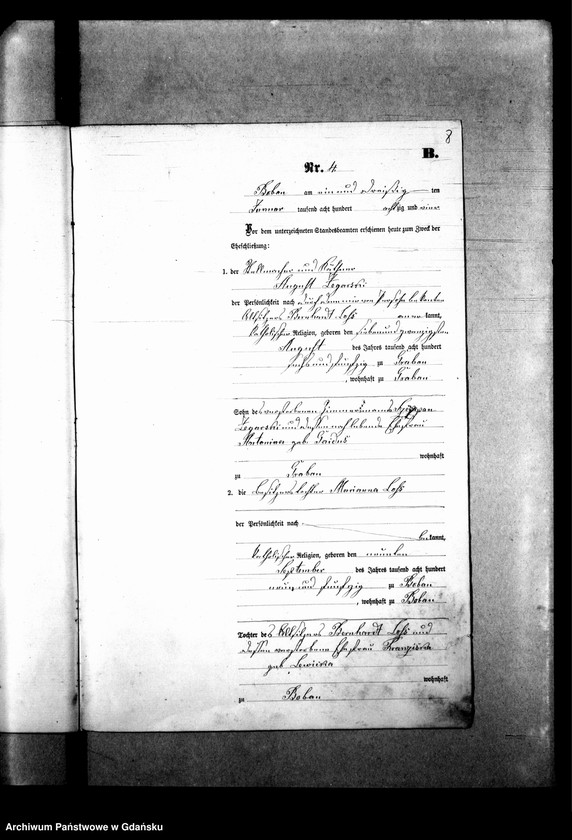 8
B.
Nr. 4.
Boban am ein und dreißig ten
Januar tausend acht hundert achtzig und vier
Vor dem unterzeichneten Standesbeamten erschienen heute zum Zweck der
Eheschließung:
1. der Stellmacher und Käthner
August Zegarski
der Persönlichkeit nach durch den mir von Person bekannten
Altsitzer Bernhardt Loß anerkannt,
katholischer Religion, geboren den sieben und zwanzigsten
August des Jahres tausend acht hundert
sechs und fünfzig zu Grabau
, wohnhaft zu Grabau
Sohn des verstorbenen Zimmermanns
Zegarski und dessen noch lebende Ehefrau
geb.
wohnhaft
zu Grabau
2. die Besitzerstochter Marianna Loß
der Persönlichkeit nach
bekannt,
katholischer Religion, geboren den neunten
September des Jahres tausend acht hundert
neun und fünfzig zu Boban
, wohnhaft zu Boban
Tochter des Altsitzers Bernhardt Loß und
dessen verstorbene Ehefrau Franziska
geb.
wohnhaft
zu Boban
Archiwum Państwowe w Gdańsku